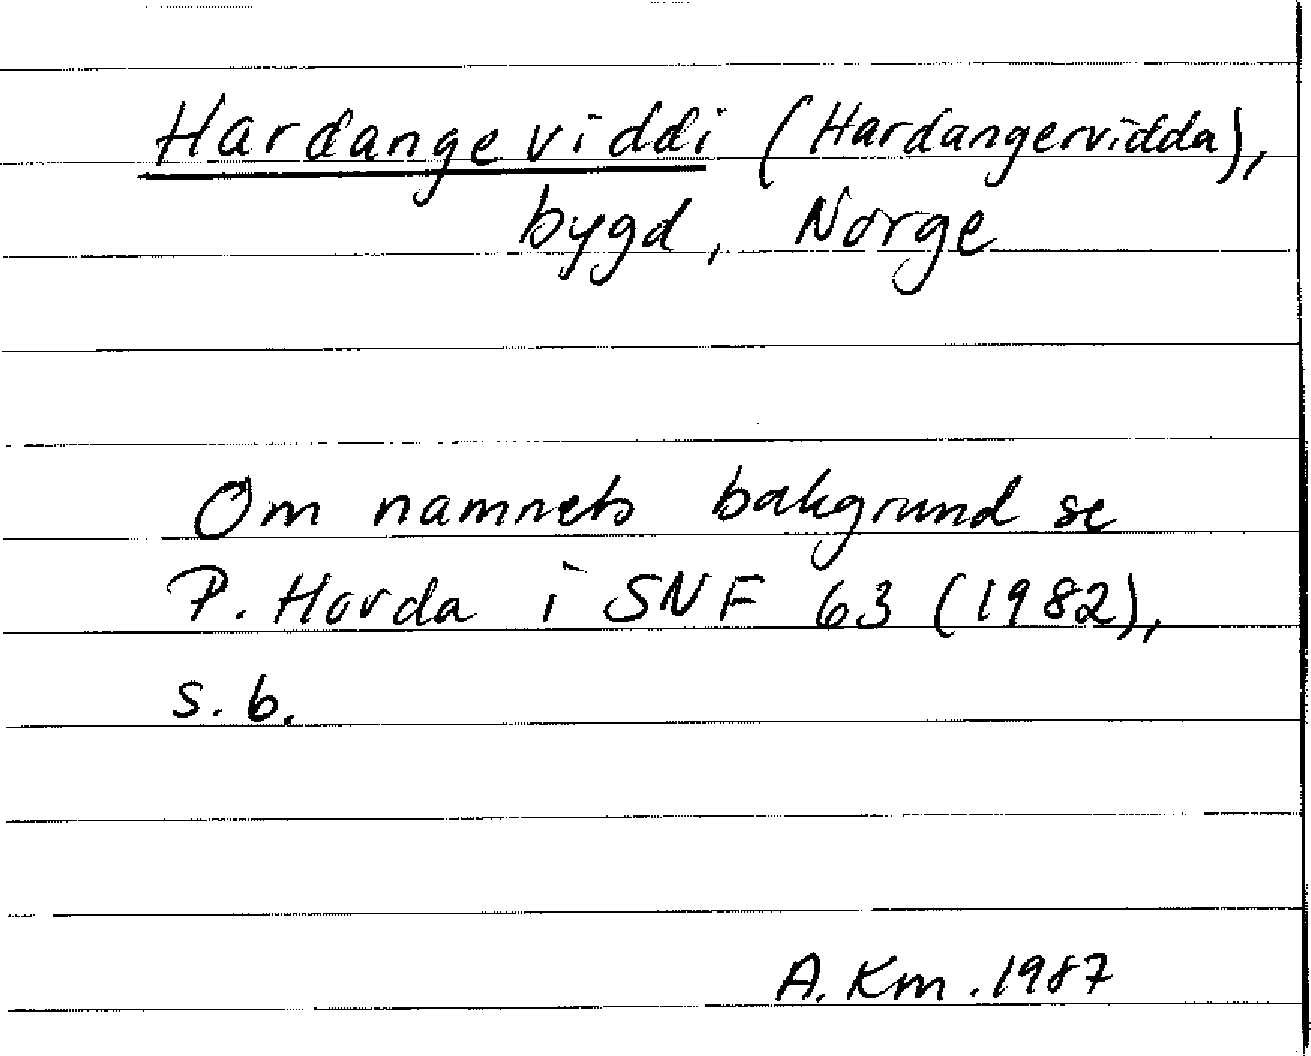 Hardangeviddi (Hardangervidda),
bygd, Norge
Om namnets bakgrund se
P. Hovda i SNF 63 (1982),
s. 6.
A. Km. 1987